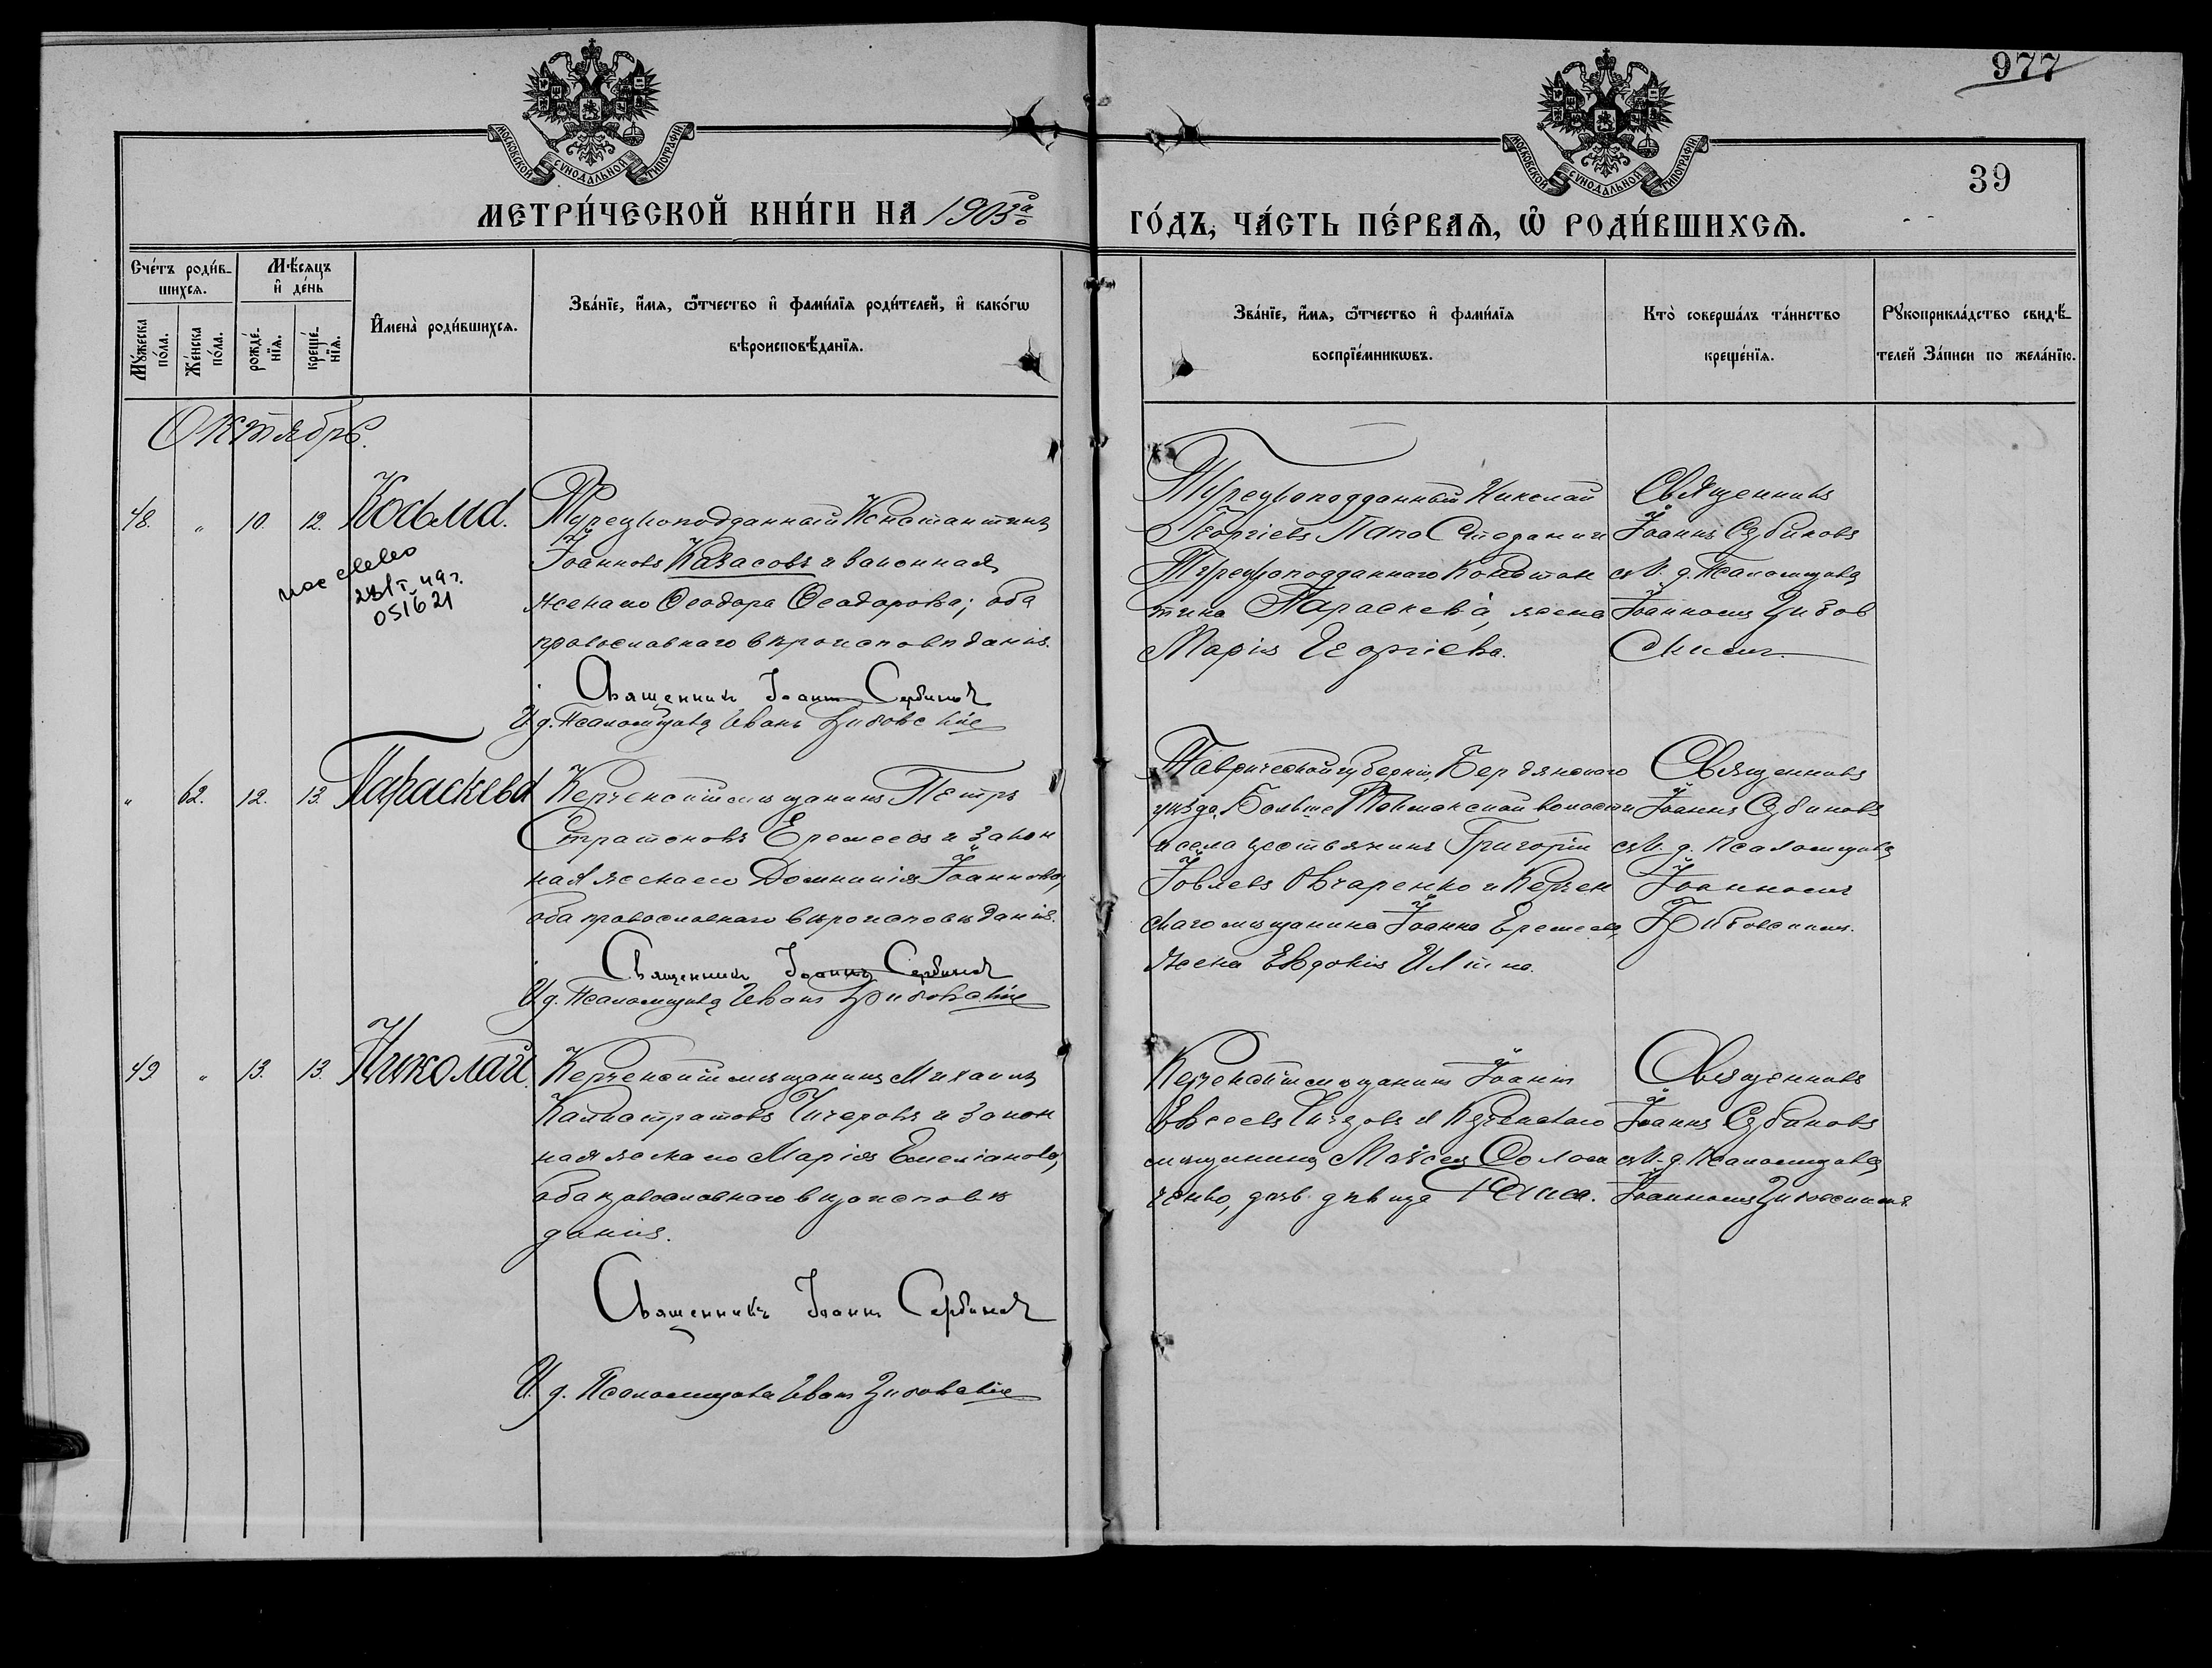 977
39
МОСКОВСКОЙ СѴНОДАЛЬНОЙ ТИПОГРАФІИ
МОСКОВСКОЙ СѴНОДАЛЬНОЙ ТИПОГРАФІИ
МЕТРИ́ЧЕСКОЙ КНИ́ГИ НА 1903й
ГО́ДЪ, ЧА́СТЬ ПЕ́РВАѦ, Ѡ҆ РОДИ́ВШИХСѦ.
Сче́тъ роди́в-
шихсѧ.
Мѣ́сѧцъ
и҆ де́нь
Мꙋ́жеска
по́ла.
Же́нска
по́ла.
рожде́-
нїѧ.
креще́-
нїѧ.
И҆мена̀ роди́вшихсѧ.
Зва́нїе, и҆́мѧ, ѻ҆́тчество и҆ фами́лїѧ роди́телей, и҆ како́гѡ
вѣроисповѣ́данїѧ.
Зва́нїе, и҆́мѧ, ѻ҆́тчество и҆ фами́лїѧ
воспрїе́мникѡвъ.
Кто̀ соверша́лъ та́инство
креще́нїѧ.
Рꙋкоприкла́дство свидѣ́-
телей За́писи по жела́нїю.
Октябрь.
48. " 10. 12. Косьма.
Турецкоподданный Константинъ
Іоанновъ Казасовъ и законная
жена его Ѳеодора Ѳеодорова; оба
православнаго вѣроисповѣданія.
Священникъ Іоаннъ Сербиновъ
И. д. Псаломщика Иванъ Цибовскій
051621
Турецкоподданный Николай
Георгіевъ Папа Стоданичи
Турецкоподданнаго Констан
тина Параскева, жена
Марія Георгіева.
Священникъ
Іоаннъ Сербиновъ
съ И. д. Псаломщика
Іоанномъ Цибов
скимъ.
" 62. 12. 13. Параскева
Керченскій мѣщанинъ Петръ
Стратоновъ Еремеевъ и закон
ная жена его Домникія Іоаннова,
оба православнаго вѣроисповѣданія.
Священникъ Іоаннъ Сербиновъ
И. д. Псаломщика Иванъ Цибовскій
Таврической губерніи, Бердянскаго
уѣзда, Больше Токмакской волости
и села крестьянинъ Григорій
Іовлевъ Овчаренко и Керчен
скаго мѣщанина Іоанна Еремеева,
жена Евдокія Ильина.
Священникъ
Іоаннъ Сербиновъ
съ И. д. Псаломщика
Іоанномъ
Цибовскимъ.
49 " 13. 13. Николай.
Керченскій мѣщанинъ Михаилъ
Калистратовъ Чичеровъ и закон
ная жена его Марія Емеліанова,
оба православнаго вѣроисповѣ
данія.
Священникъ Іоаннъ Сербиновъ
И. д. Псаломщика Иванъ Цибовскій
Керченскій мѣщанинъ Іоаннъ
Евсеевъ Чичеровъ и Керченскаго
мѣщанина Моѵсея Солом
ченко, дочь дѣвица Раиса.
Священникъ
Іоаннъ Сербиновъ
съ И. д. Псаломщика
Іоанномъ Цибовскимъ.